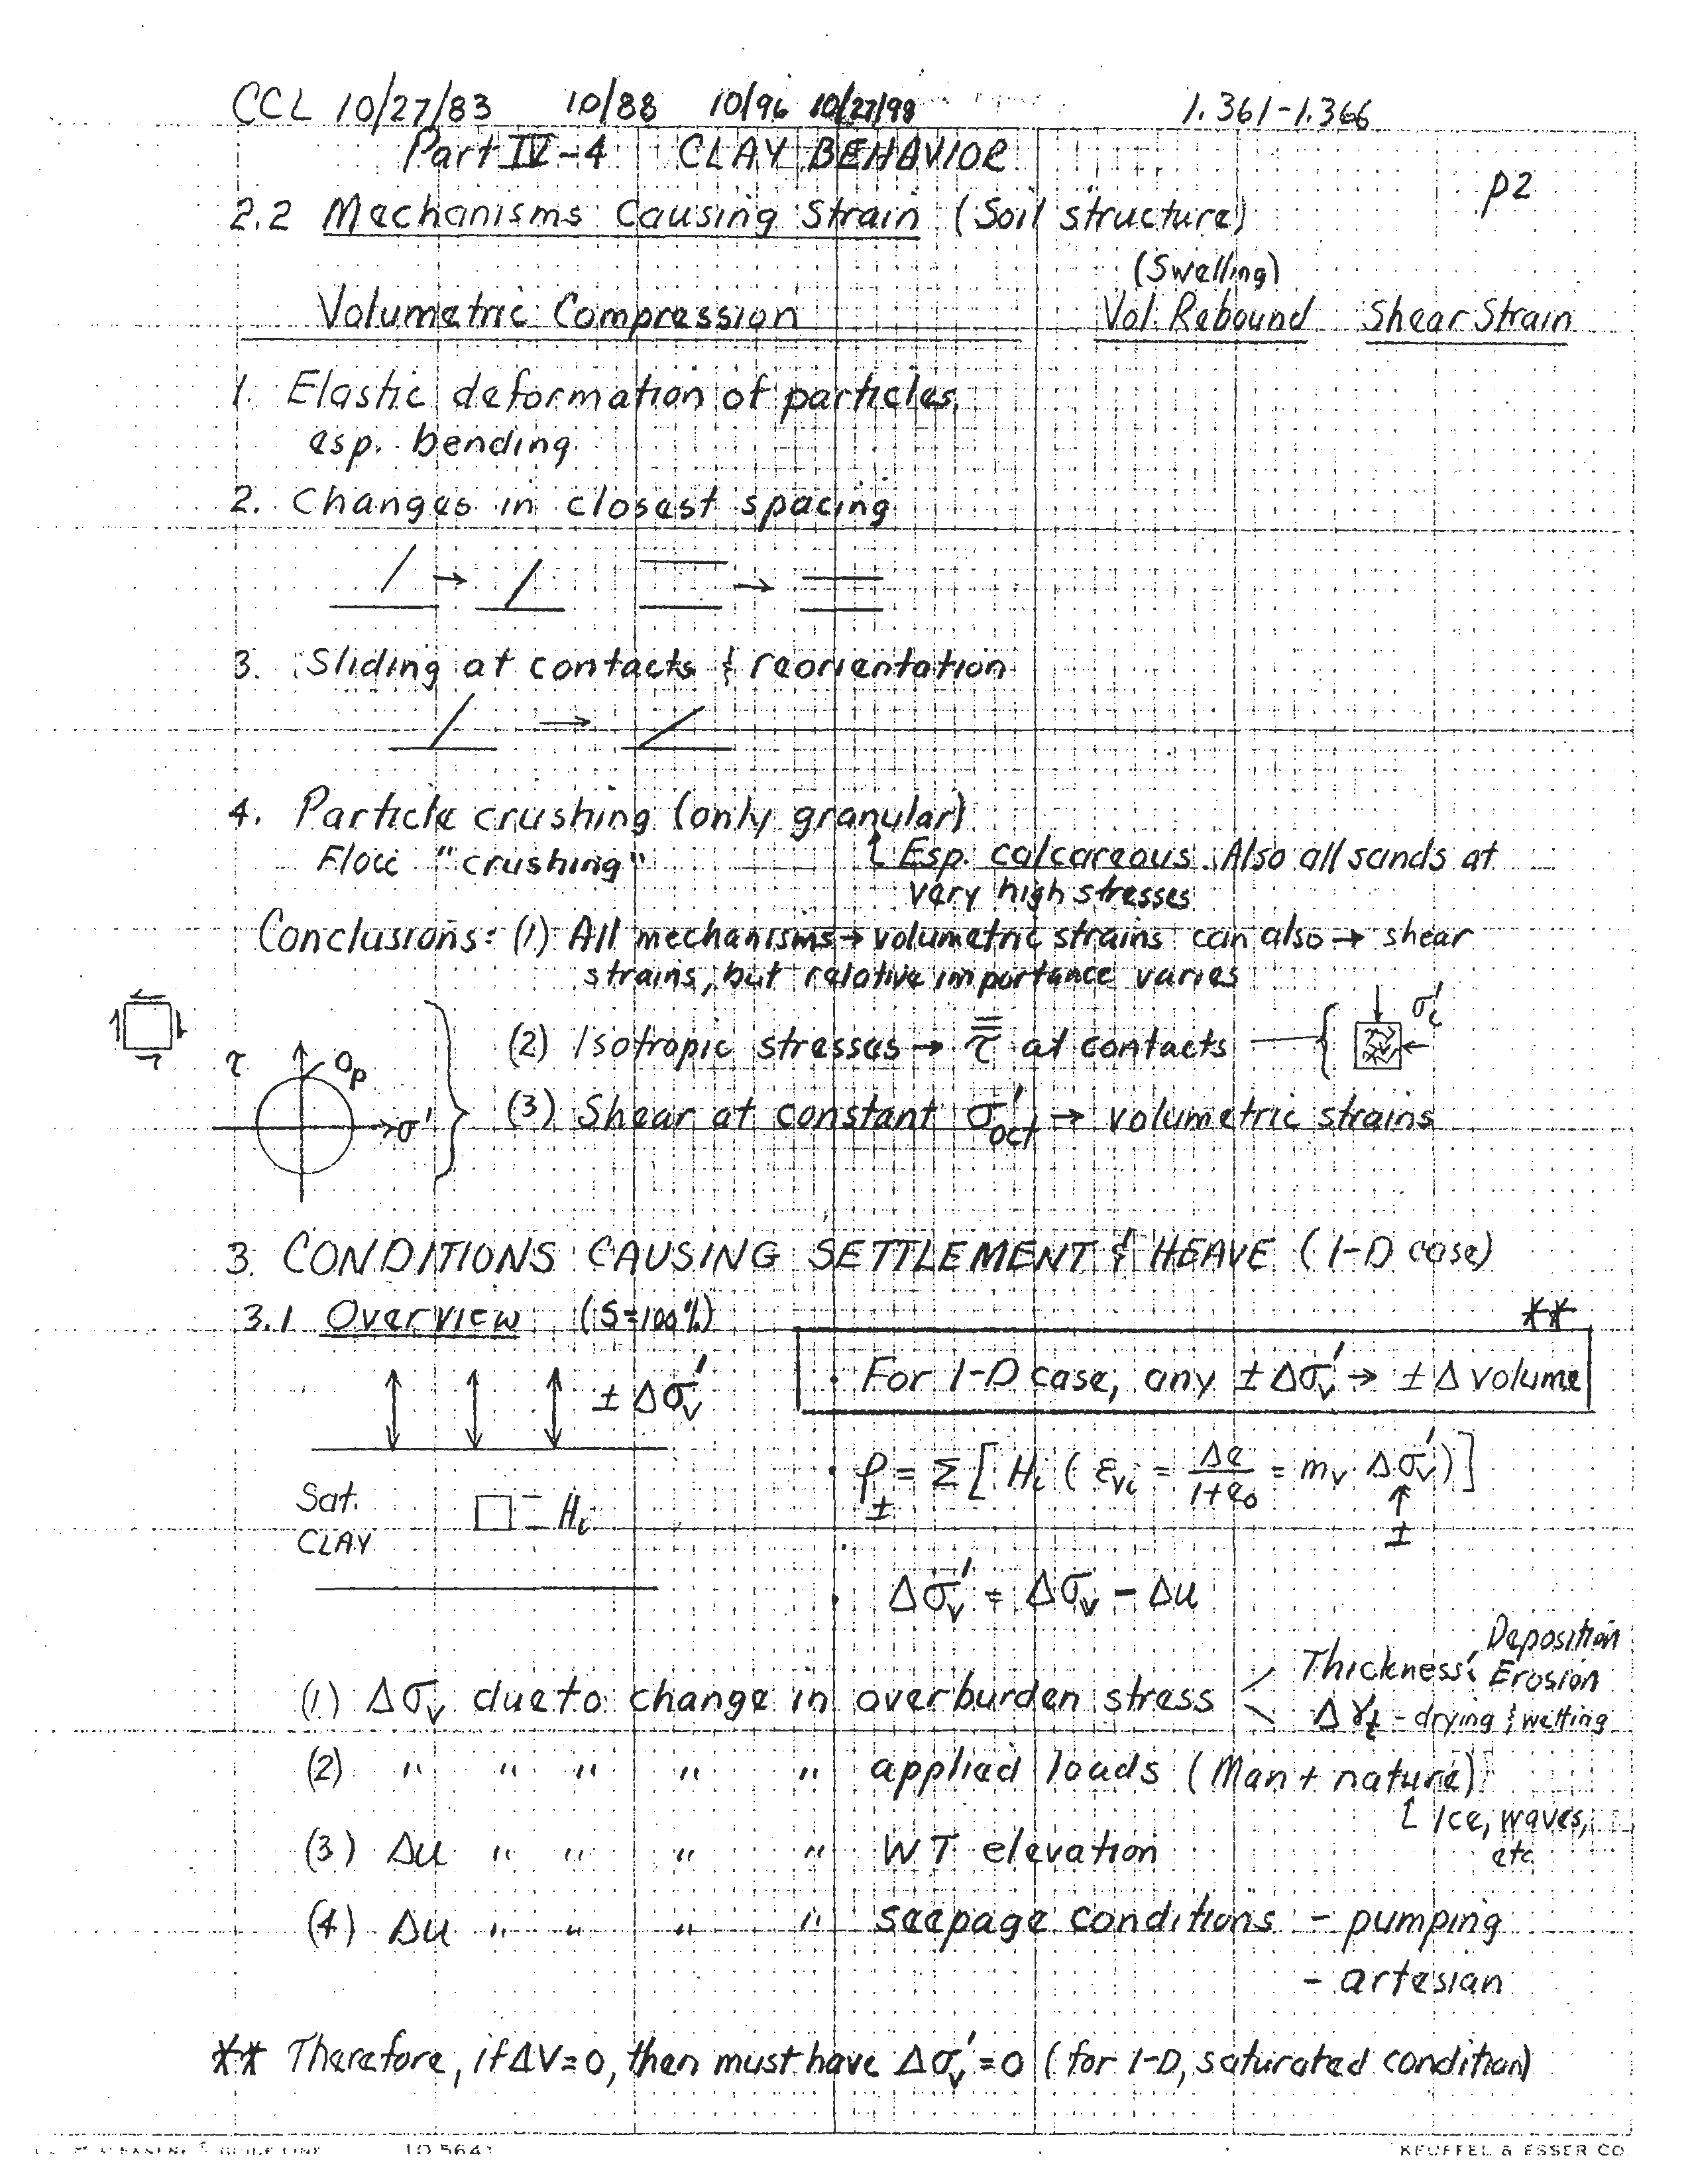 CCL 10/27/83 10/88 10/96 10/27/98 1.361-1.366
Part IV-4 CLAY BEHAVIOR
p2
2.2 Mechanisms Causing Strain (Soil structure)
(Swelling)
Volumetric Compression Vol. Rebound Shear Strain
1. Elastic deformation of particles,
esp. bending
2. Changes in closest spacing
3. Sliding at contacts & reorientation
4. Particle crushing (only granular)
Floc "crushing" Esp. calcareous. Also all sands at
very high stresses
Conclusions: (1) All mechanisms → volumetric strains can also → shear
strains, but relative importance varies
(2) Isotropic stresses → τ at contacts σ'c
τ Op
(3) Shear at constant σ'oct → volumetric strains
σ'
3. CONDITIONS CAUSING SETTLEMENT & HEAVE (1-D case)
3.1 Overview (S=100%) **
± Δσv' • For 1-D case, any ± Δσv' → ± Δ volume
• ρ = Σ [ Hi ( εvi = Δe/1+e0 = mv Δσv' ) ]
± ±
Sat. Hi
CLAY
• Δσv' = Δσv - Δu
Deposition
Thickness: Erosion
(1) Δσv due to change in overburden stress
Δγt - drying & wetting
(2) " " " " " applied loads (Man + nature)
Ice, waves,
etc.
(3) Δu " " " " WT elevation
(4) Δu " " " " seepage conditions - pumping
- artesian
** Therefore, if ΔV=0, then must have Δσv'=0 (for 1-D, saturated condition)
KEUFFEL & ESSER CO.